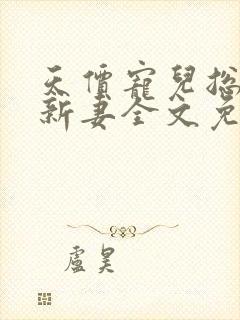 天價寵兒總
新妻全文免
盧昊